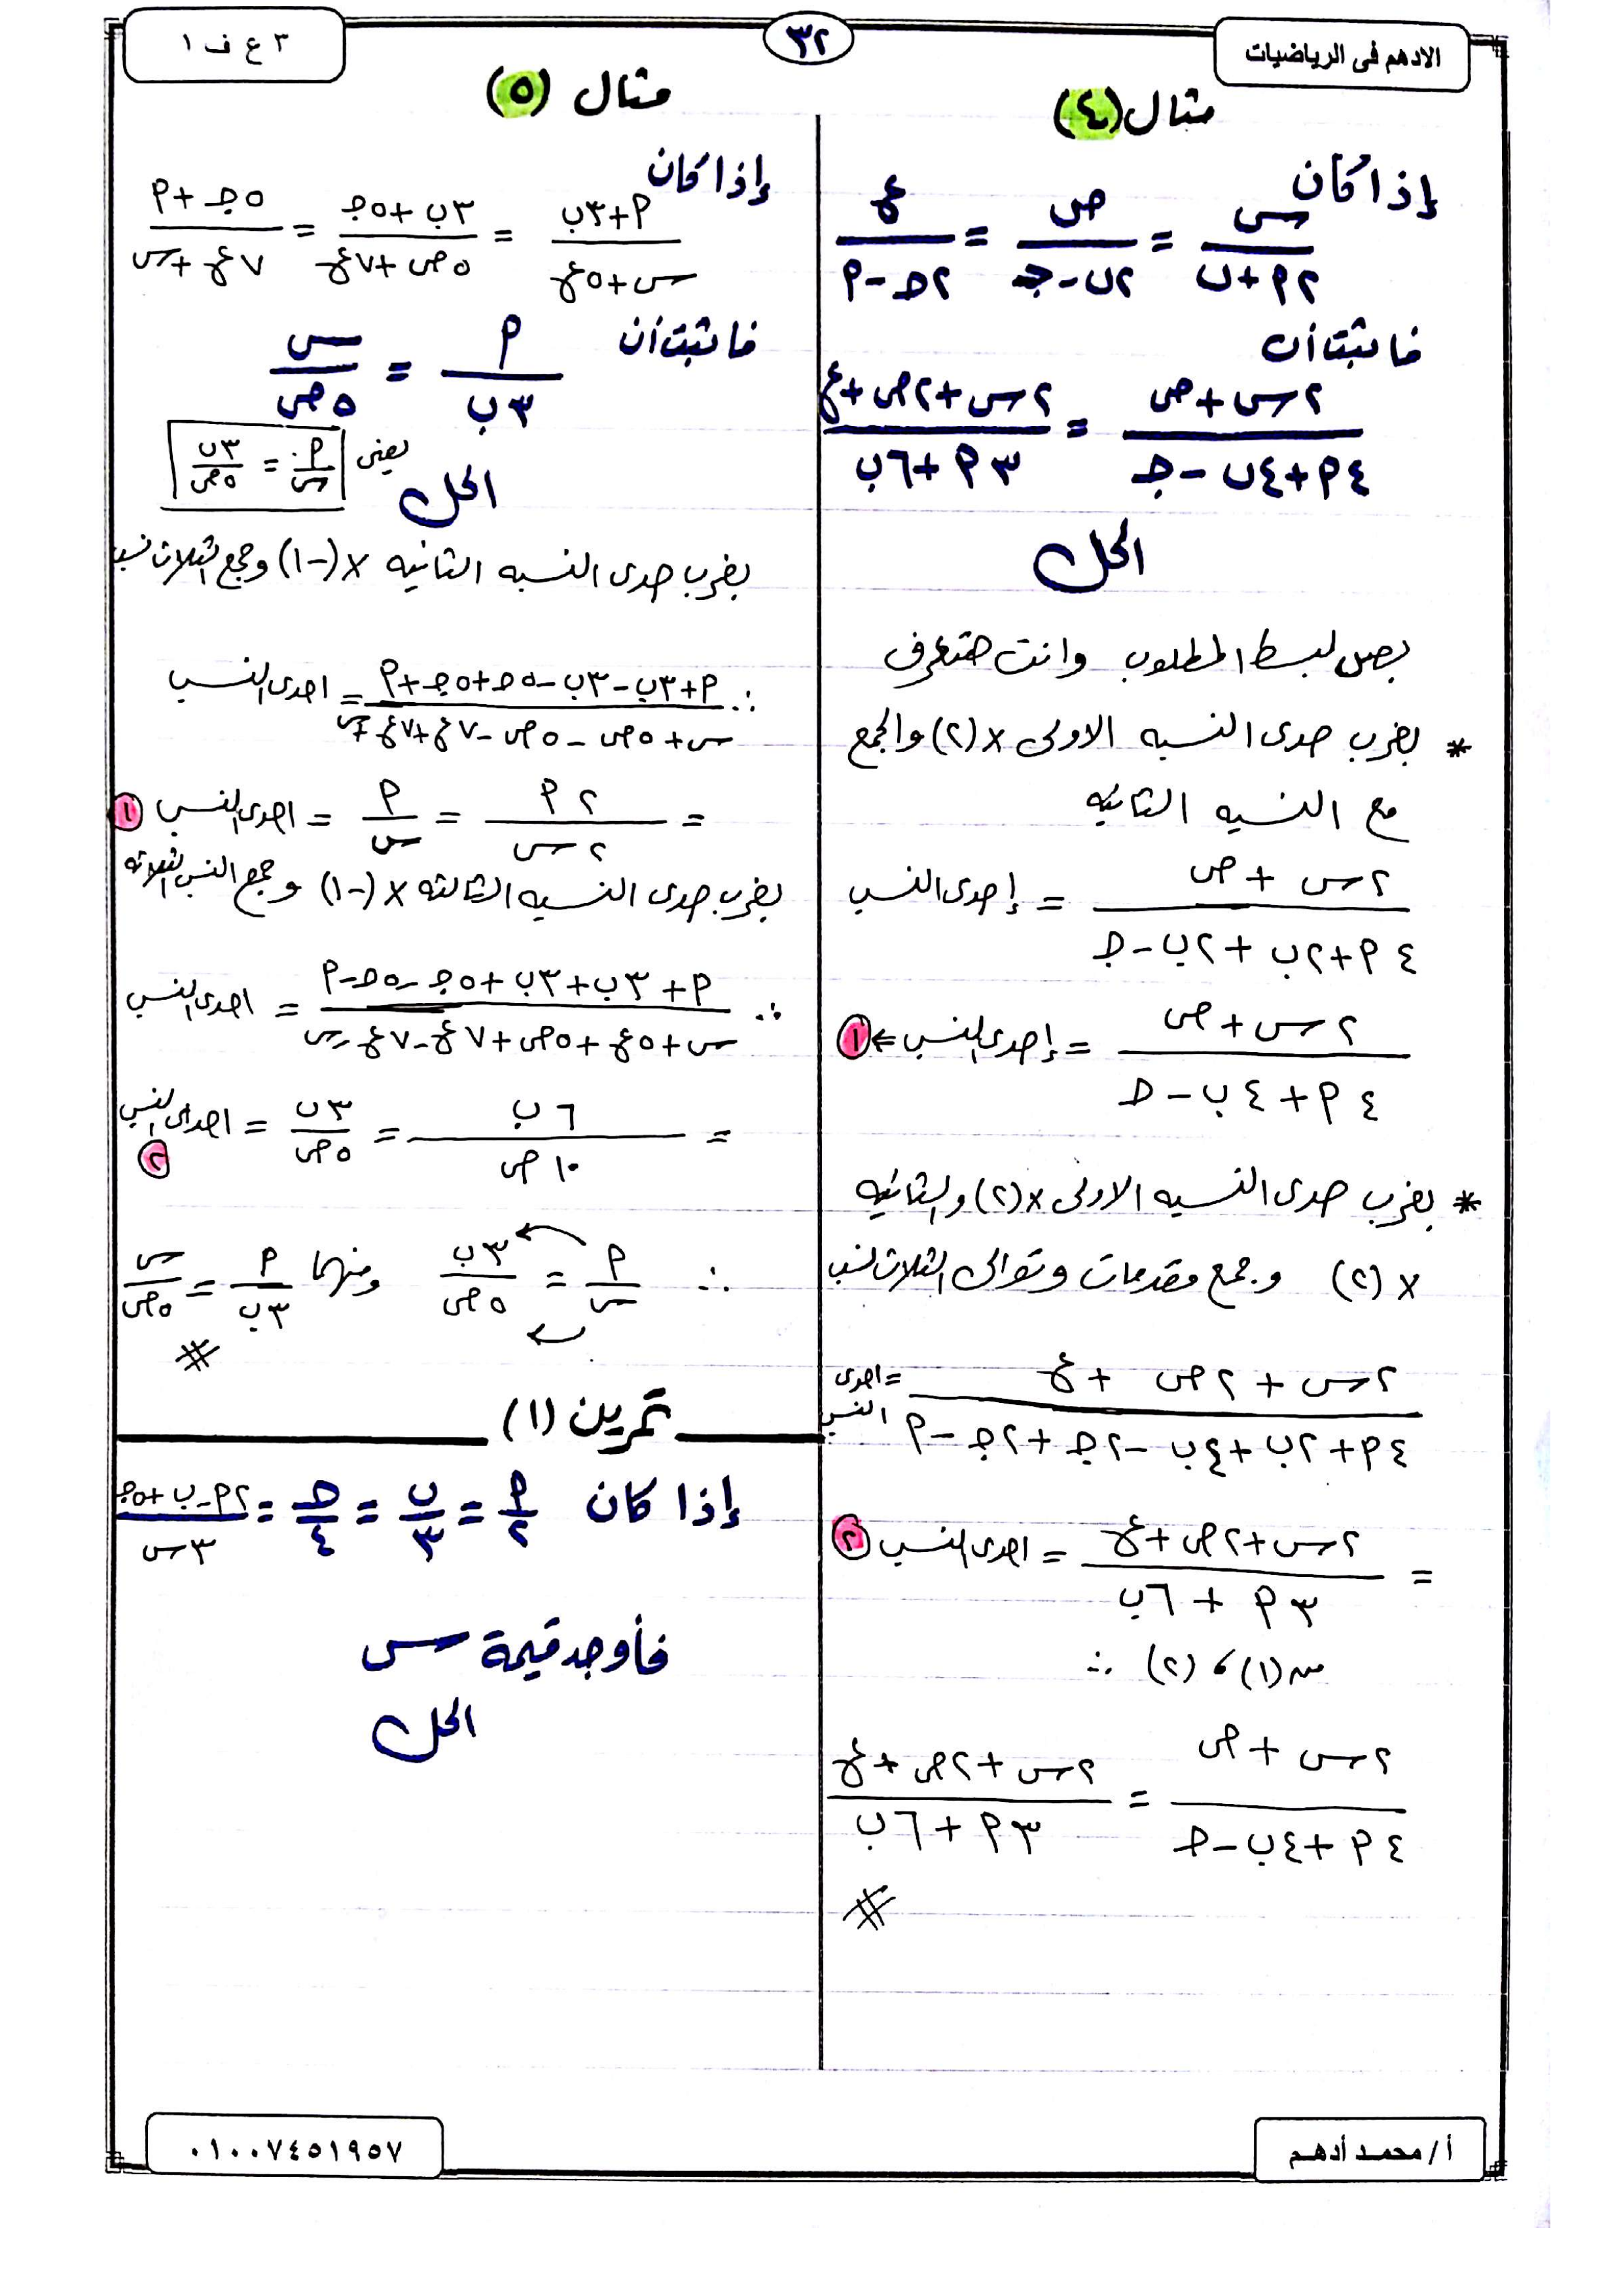 الادهم فى الرياضيات
٣٢
٣ ع ف ١
مثال (٤)
إذا كان
س/(٢٢+ب) = ص/(٢ب-جـ) = ع/(٢جـ-٢)
فاثبت أن
(٢س+ص)/(٤٢+٤ب-جـ) = (٢س+٢ص+ع)/(٣٢+٦ب)
الحل
بص لبسط المطلوب وانت هتعرف
* بضرب حدى النسبه الاولى × (٢) والجمع
مع النسبه الثانيه
(٢س+ص)/(٤٢+٢ب+٢ب-جـ) = إحدى النسب
(٢س+ص)/(٤٢+٤ب-جـ) = إحدى النسب ← ١
* بضرب حدى النسبه الاولى × (٢) والثانيه
× (٢) وجمع مقدمات وتوالى الثلاث نسب
(٢س+٢ص+ع)/(٤٢+٢ب+٤ب-٢جـ+٢جـ-٢) = احدى النسب
= (٢س+٢ص+ع)/(٣٢+٦ب) = احدى النسب ٢
من (١) ، (٢) ∴
(٢س+ص)/(٤٢+٤ب-جـ) = (٢س+٢ص+ع)/(٣٢+٦ب)
#
مثال (٥)
إذا كان
(٢+٣ب)/(س+٥ع) = (٣ب+٥جـ)/(٥ص+٧ع) = (٥جـ+٢)/(٧ع+س)
فاثبت أن
٢/٣ب = س/٥ص
يعنى ٢/س = ٣ب/٥ص
الحل
بضرب حدى النسبه الثانيه × (-١) وجمع الثلاث نسب
∴ (٢+٣ب-٣ب-٥جـ+٥جـ+٢)/(س+٥ص-٥ص-٧ع+٧ع+س) = احدى النسب
= ٢٢/٢س = ٢/س = احدى النسب ١
بضرب حدى النسبه الثالثه × (-١) وجمع النسب الثلاثه
∴ (٢+٣ب+٣ب+٥جـ-٥جـ-٢)/(س+٥ع+٥ص+٧ع-٧ع-س) = احدى النسب
= ٦ب/١٠ص = ٣ب/٥ص = احدى النسب ٢
∴ ٢/س = ٣ب/٥ص ومنها ٢/٣ب = س/٥ص
#
تمرين (١)
إذا كان ٢/٢ = ب/٣ = جـ/٤ = (٢٢-ب+٥جـ)/٣س
فأوجد قيمة س
الحل
أ/ محمد أدهم
٠١٠٠٧٤٥١٩٥٧